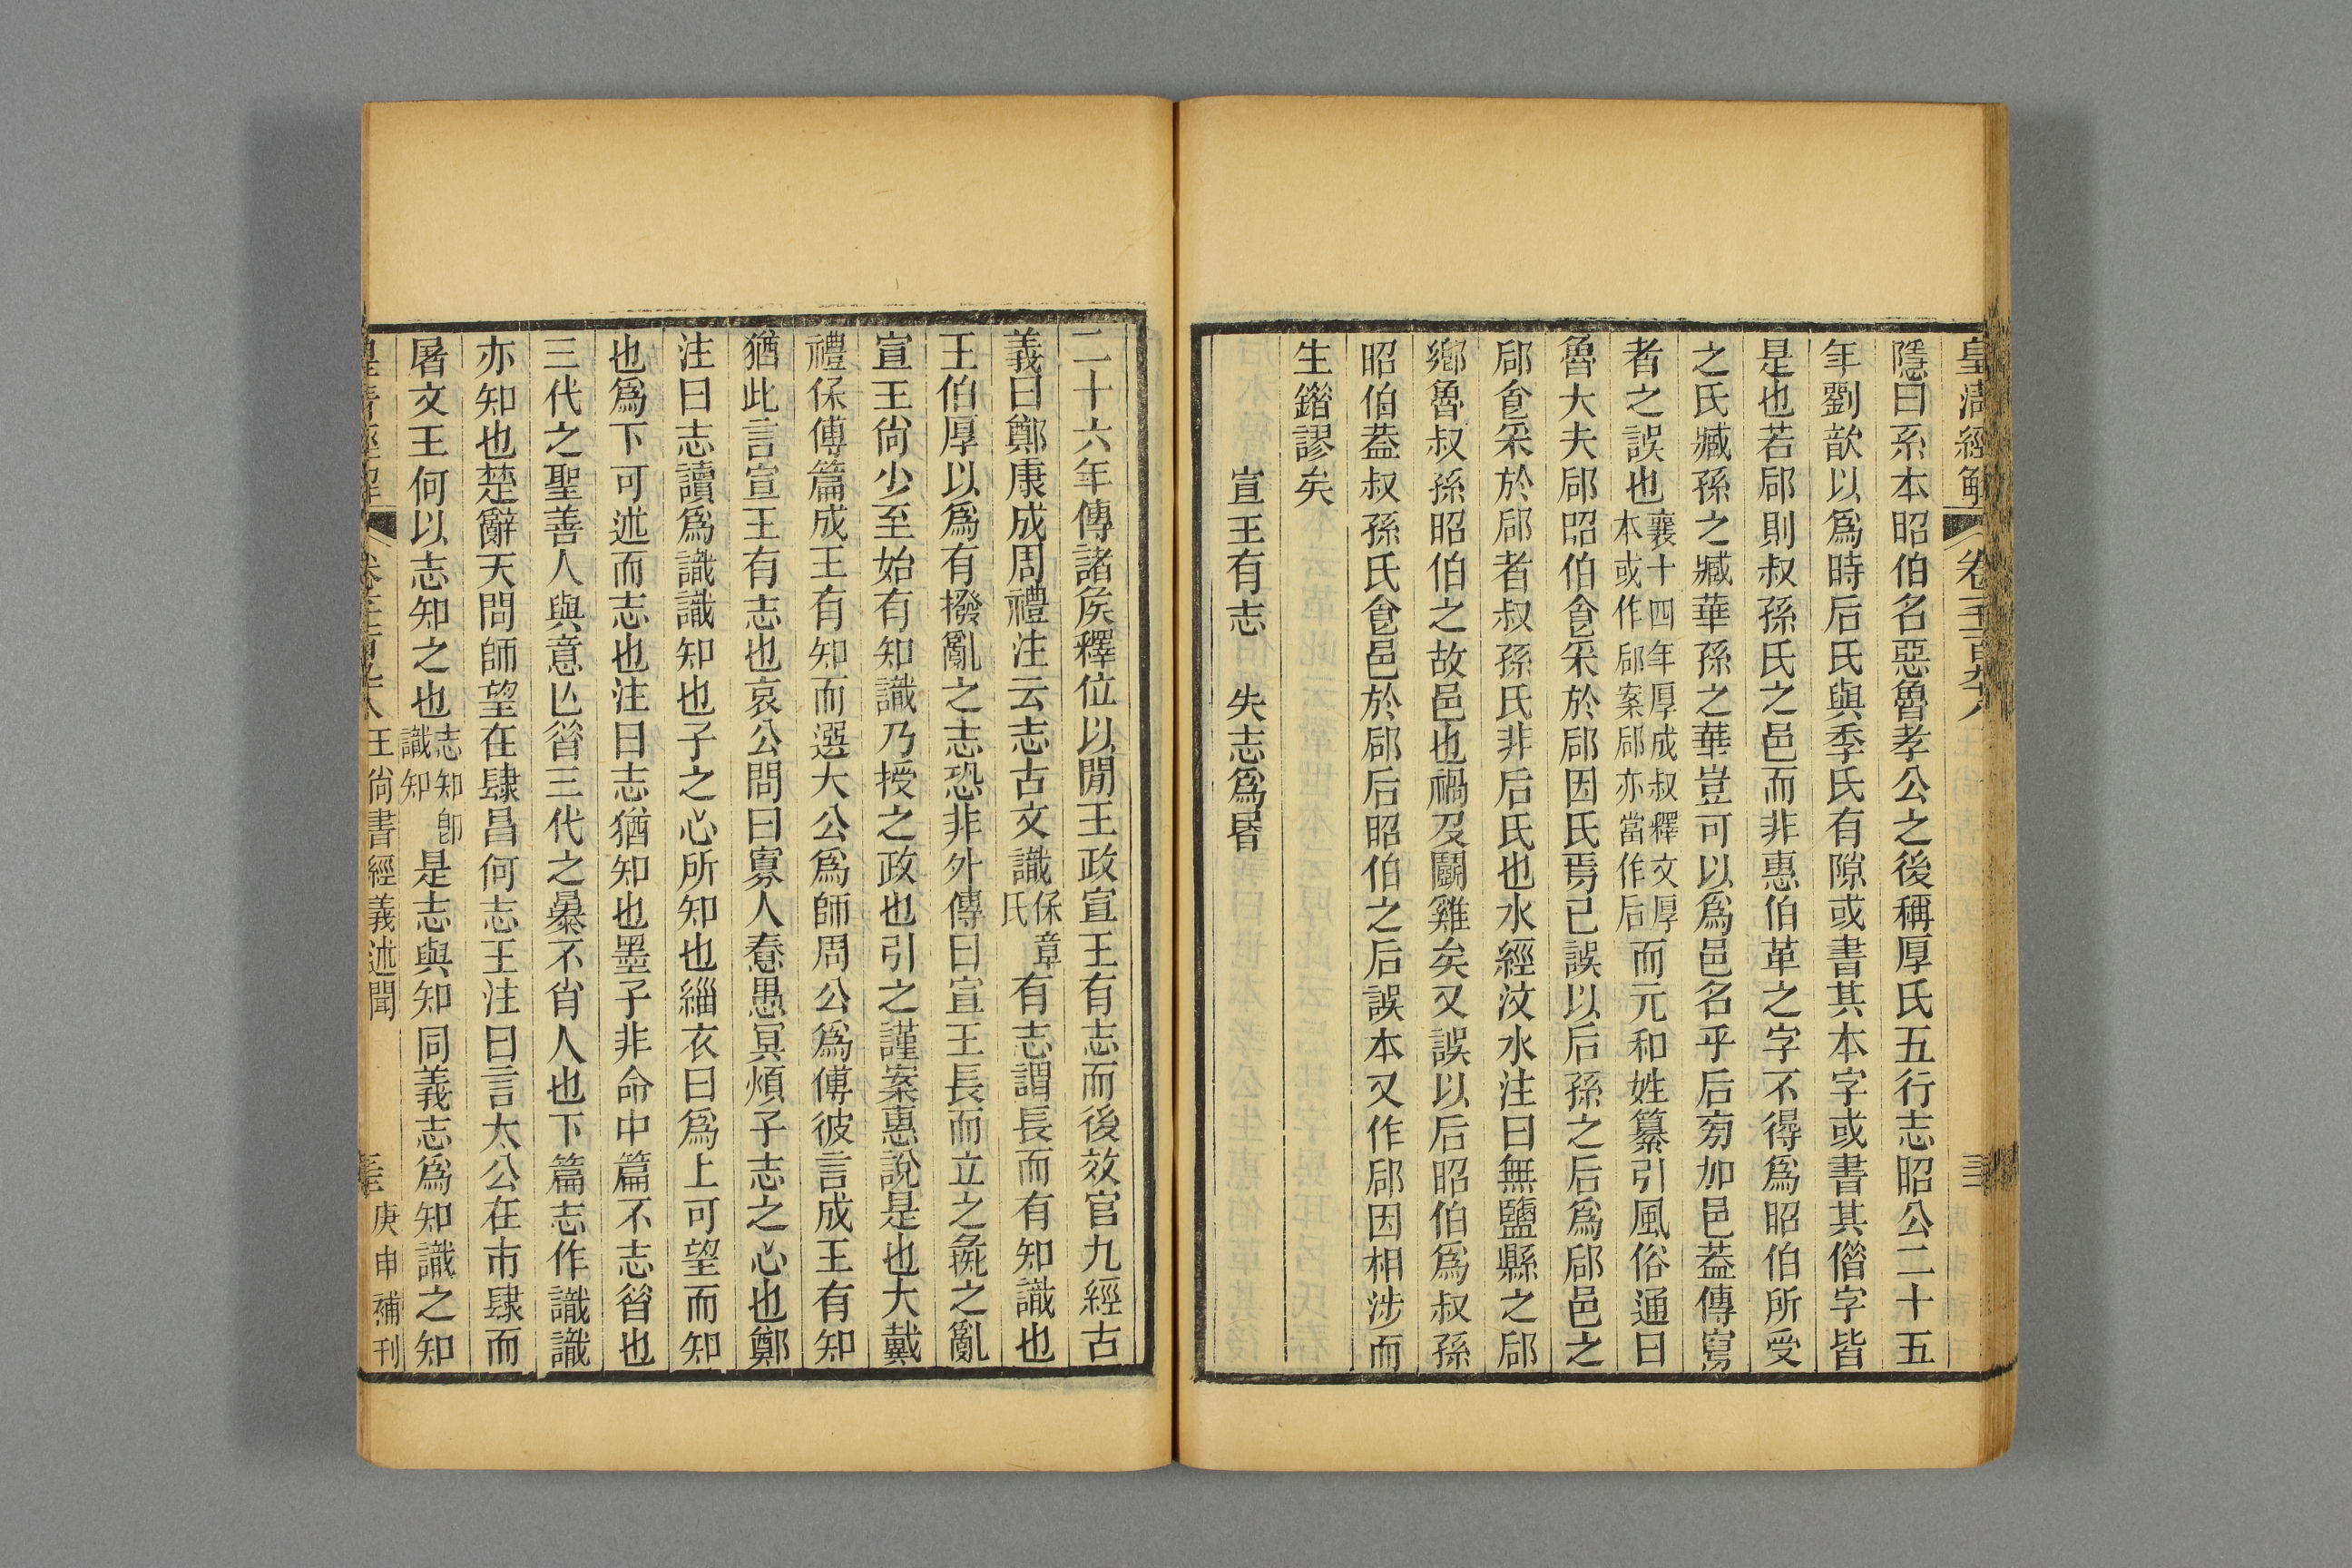 皇清經解
卷千一百九十八
隱曰系本昭伯名惡魯孝公之後稱厚氏五行志昭公二十五
年劉歆以爲時后氏與季氏有隙或書其本字或書其偕字皆
是也若郈則叔孫氏之邑而非惠伯革之字不得爲昭伯所受
之氏臧孫之臧華孫之華豈可以爲邑名乎后旁加邑蓋傳寫
者之誤也襄十四年厚成叔釋文厚本或作郈案郈亦當作后而元和姓纂引風俗通曰
魯大夫郈昭伯食采於郈因氏焉已誤以后孫之后爲郈邑之
郈食采於郈者叔孫氏非后氏也水經汶水注曰無鹽縣之郈
鄉魯叔孫昭伯之故邑也禍及鬭雞矣又誤以后昭伯爲叔孫
昭伯蓋叔孫氏食邑於郈后昭伯之后誤本又作郈因相涉而
生錯謬矣
宣王有志 失志爲昬
二十六年傳諸矦釋位以閒王政宣王有志而後效官九經古
義曰鄭康成周禮注云志古文識保章氏有志謂長而有知識也
王伯厚以爲有撥亂之志恐非外傳曰宣王長而立之彘之亂
宣王尙少至始有知識乃授之政也引之謹案惠說是也大戴
禮保傅篇成王有知而選大公爲師周公爲傅彼言成王有知
猶此言宣王有志也哀公問曰寡人憃愚冥煩子志之心也鄭
注曰志讀爲識識知也子之心所知也緇衣曰爲上可望而知
也爲下可述而志也注曰志猶知也墨子非命中篇不志昔也
三代之聖善人與意亾昔三代之暴不肖人也下篇志作識識
亦知也楚辭天問師望在肆昌何志王注曰言太公在市肆而
屠文王何以志知之也志知卽識知是志與知同義志爲知識之知
王尙書經義述聞
庚申補刊